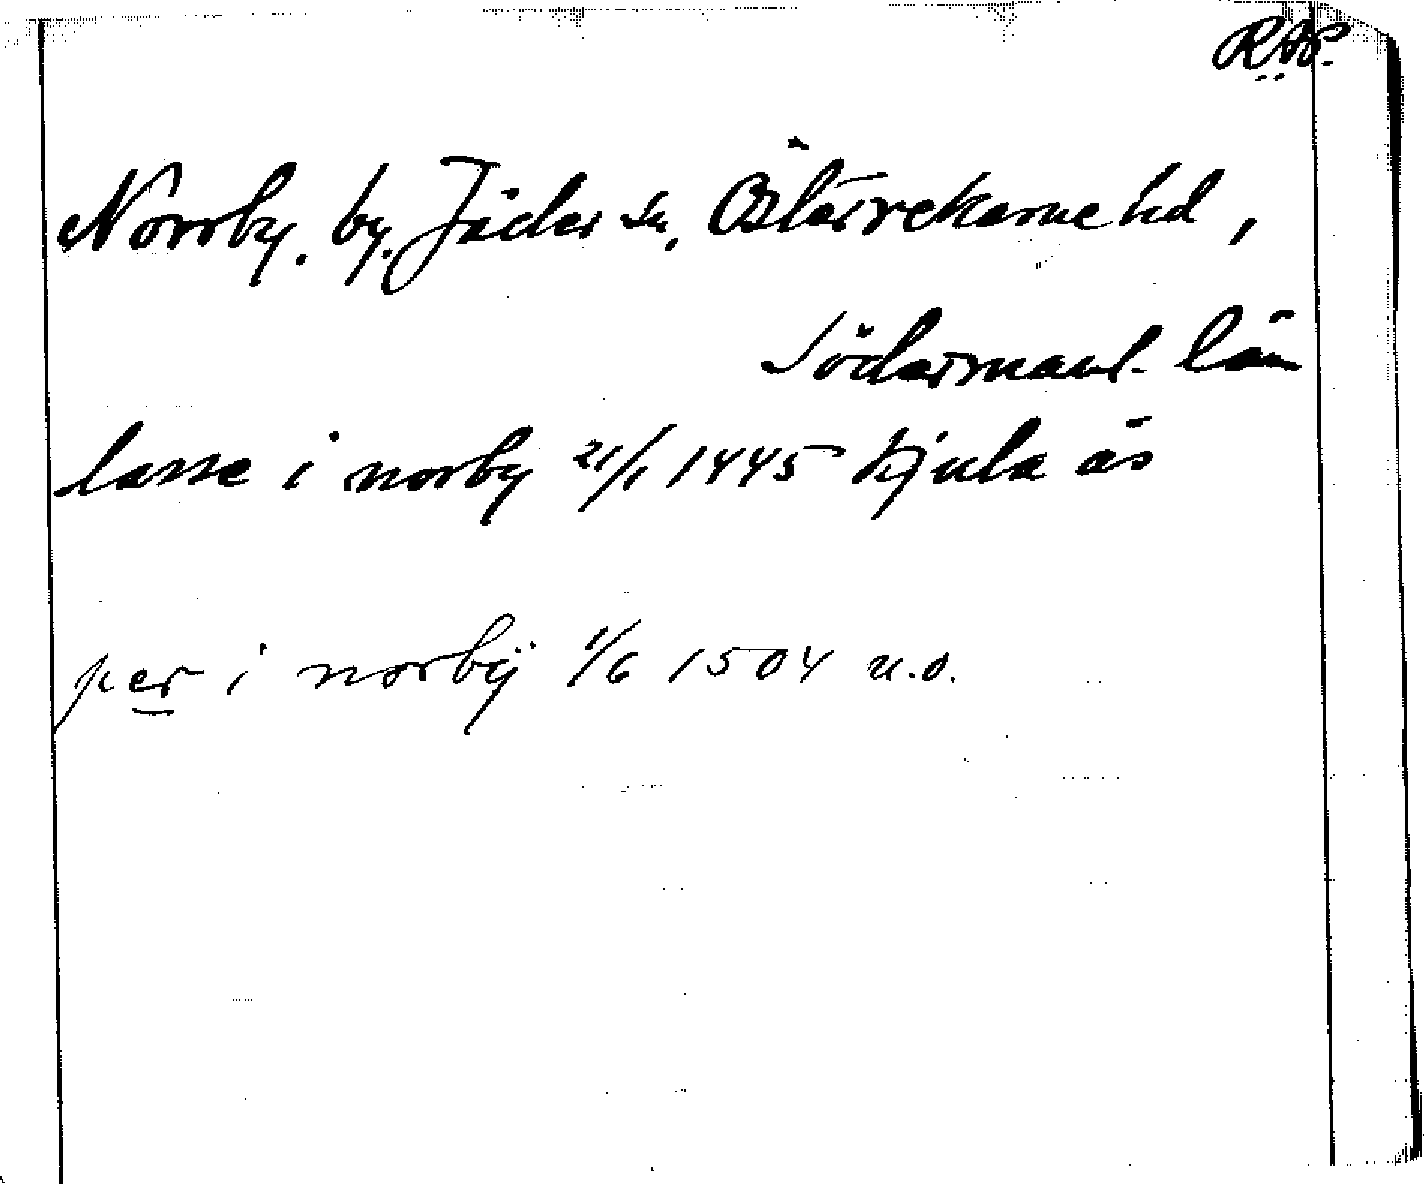 RAP.
Norrby, by, Jäder sn, Österrekarne hd,
Södermanl. län
lasse i norby 21/1 1445 Kjula ås
per i norbÿ 1/6 1504 u.o.